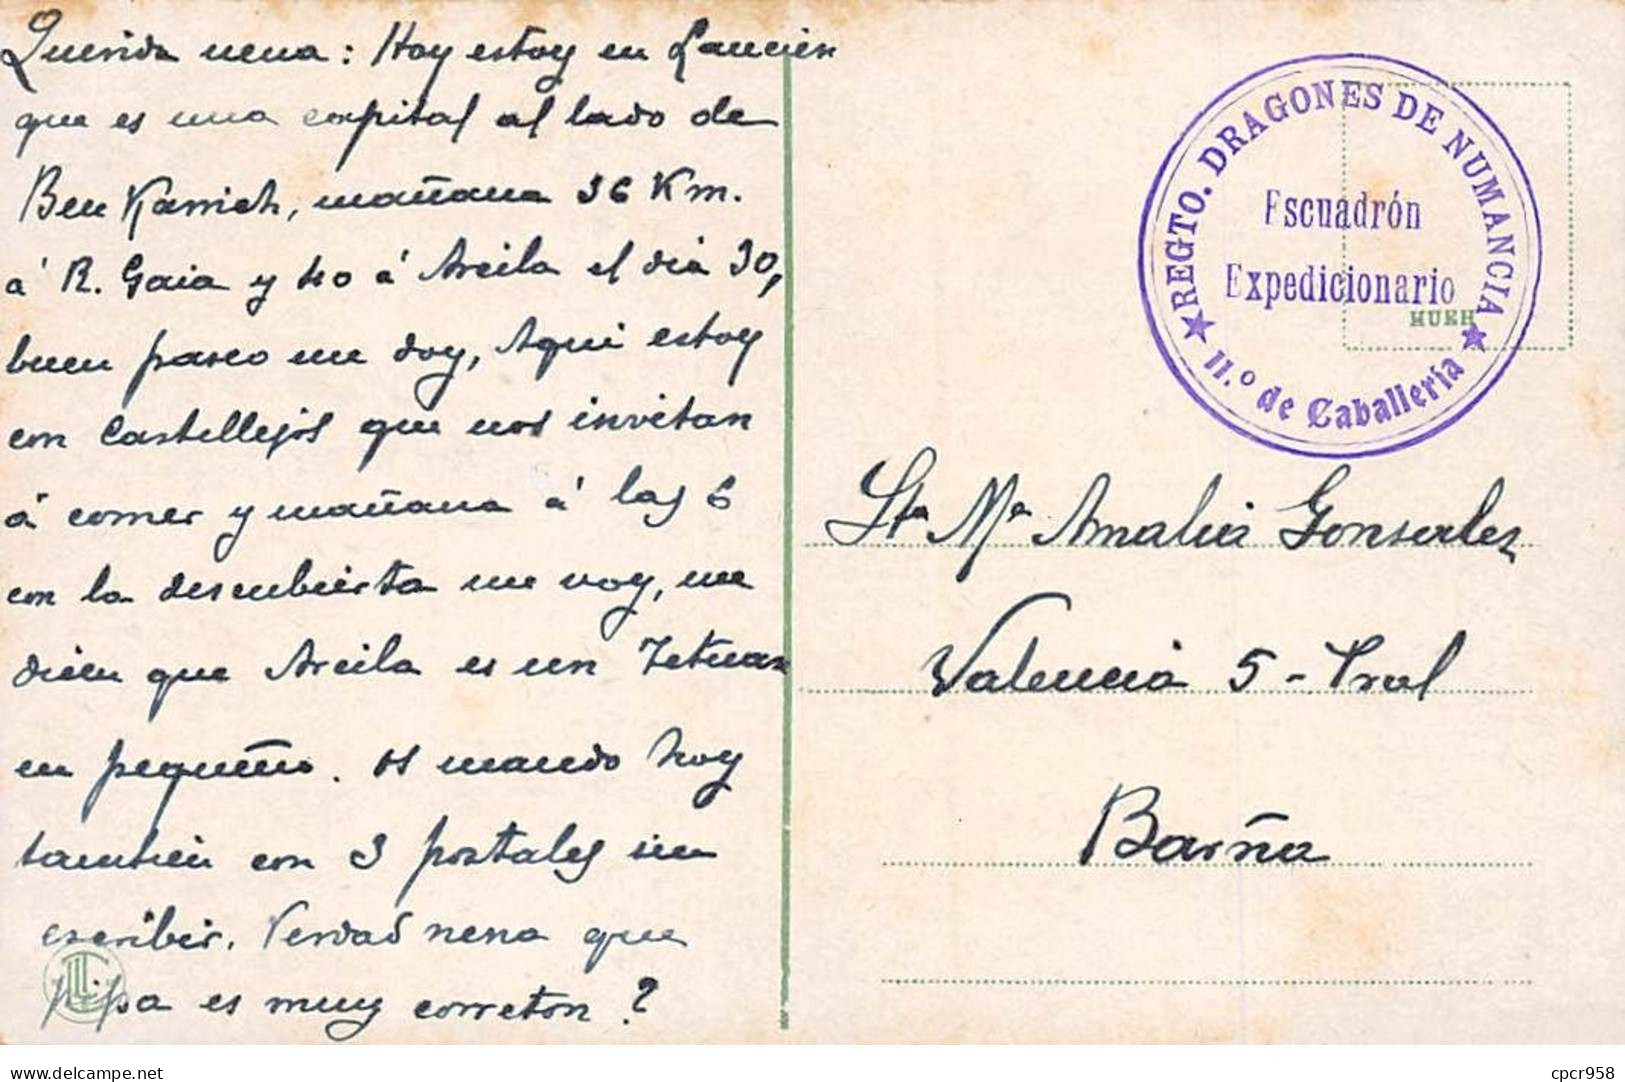 Querida nena: Hoy estoy en Laucien
que es una cospital al lado de
Ben Karrich, mañana 36 Km.
á R. Gaia y 40 á Arcila el dia 30,
buen paseo me doy, Aqui estoy
con Castillejos que nos invitan
á comer y mañana á las 6
con la descubierta me voy, me
dicen que Arcila es un Tetuan
en pequeño. os mando hoy
tambien con 3 postales sin
escribir. Verdad nena que
pipa es muy corretón?
REGTO. DRAGONES DE NUMANCIA
Escuadrón
Expedicionario
★ 11.º de Caballería ★
HUEH
Sta Mª Amalia Gonzalez
Valencia 5 - Pral
Barña
delcampe.net
cpcr958